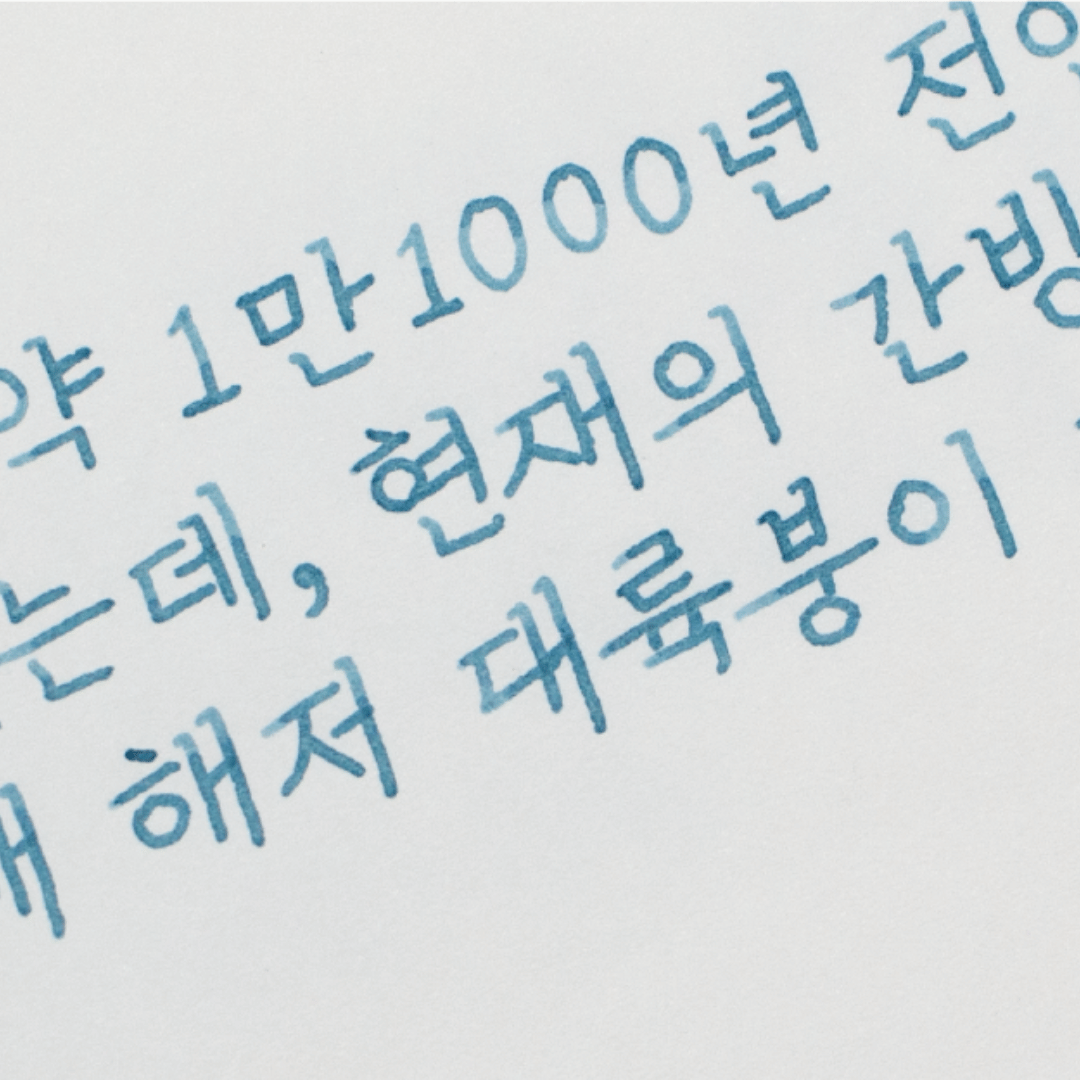 약 1만1000년 전
는데, 현재의 간빙
해저 대륙붕이